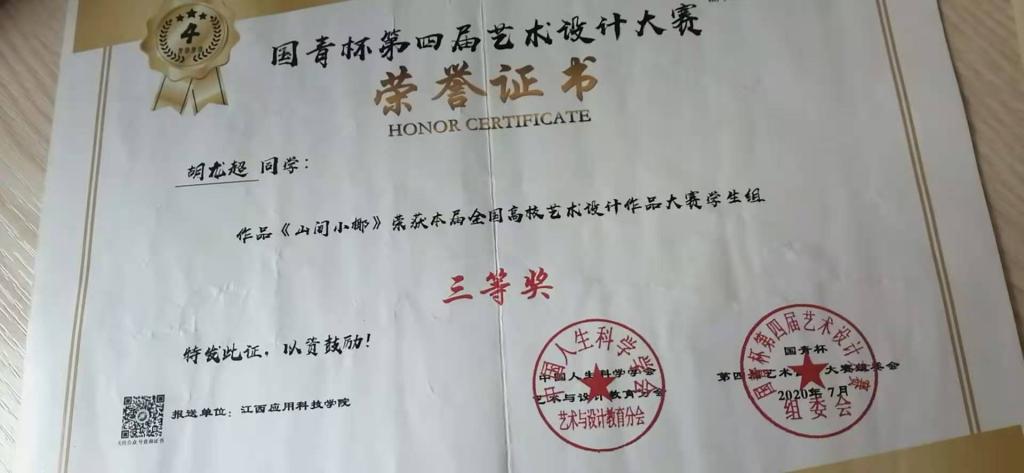 4
国青杯第四届艺术设计大赛
荣誉证书
HONOR CERTIFICATE
胡龙超 同学：
作品《山间小椰》荣获本届全国高校艺术设计作品大赛学生组
三等奖
特发此证，以资鼓励！
中国人生科学学会
中国人生科学学会
艺术与设计教育分会
艺术与设计教育分会
国青杯第四届艺术设计大赛
国青杯
第四届艺术设计大赛组委会
2020年7月
组委会
报送单位：江西应用科技学院